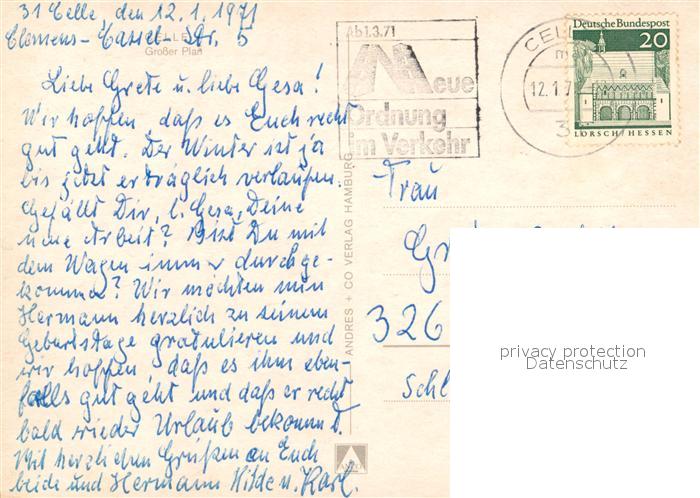 31 Celle, den 12.1.1971
Clemens-Cassel-Str. 5
CELLE
Großer Plan
Liebe Grete u. liebe Gesa!
Wir hoffen, daß es Euch recht
gut geht. Der Winter ist ja
bis jetzt erträglich verlaufen.
Gefällt Dir, l. Gesa, Deine
neue Arbeit? Bist Du mit
dem Wagen immer durchge-
kommen? Wir möchten nun
Hermann herzlich zu seinem
Geburtstage gratulieren und
wir hoffen, daß es ihm eben-
falls gut geht und daß er recht
bald wieder Urlaub bekommt.
Mit herzlichen Grüßen an Euch
beide und Hermann Hilde u. Karl.
ANDRES + CO VERLAG HAMBURG
Ab 1.3.71
Neue
Ordnung
im Verkehr
CELLE
12.1.7
3
Deutsche Bundespost
20
LORSCH/HESSEN
Frau
326
privacy protection
Datenschutz